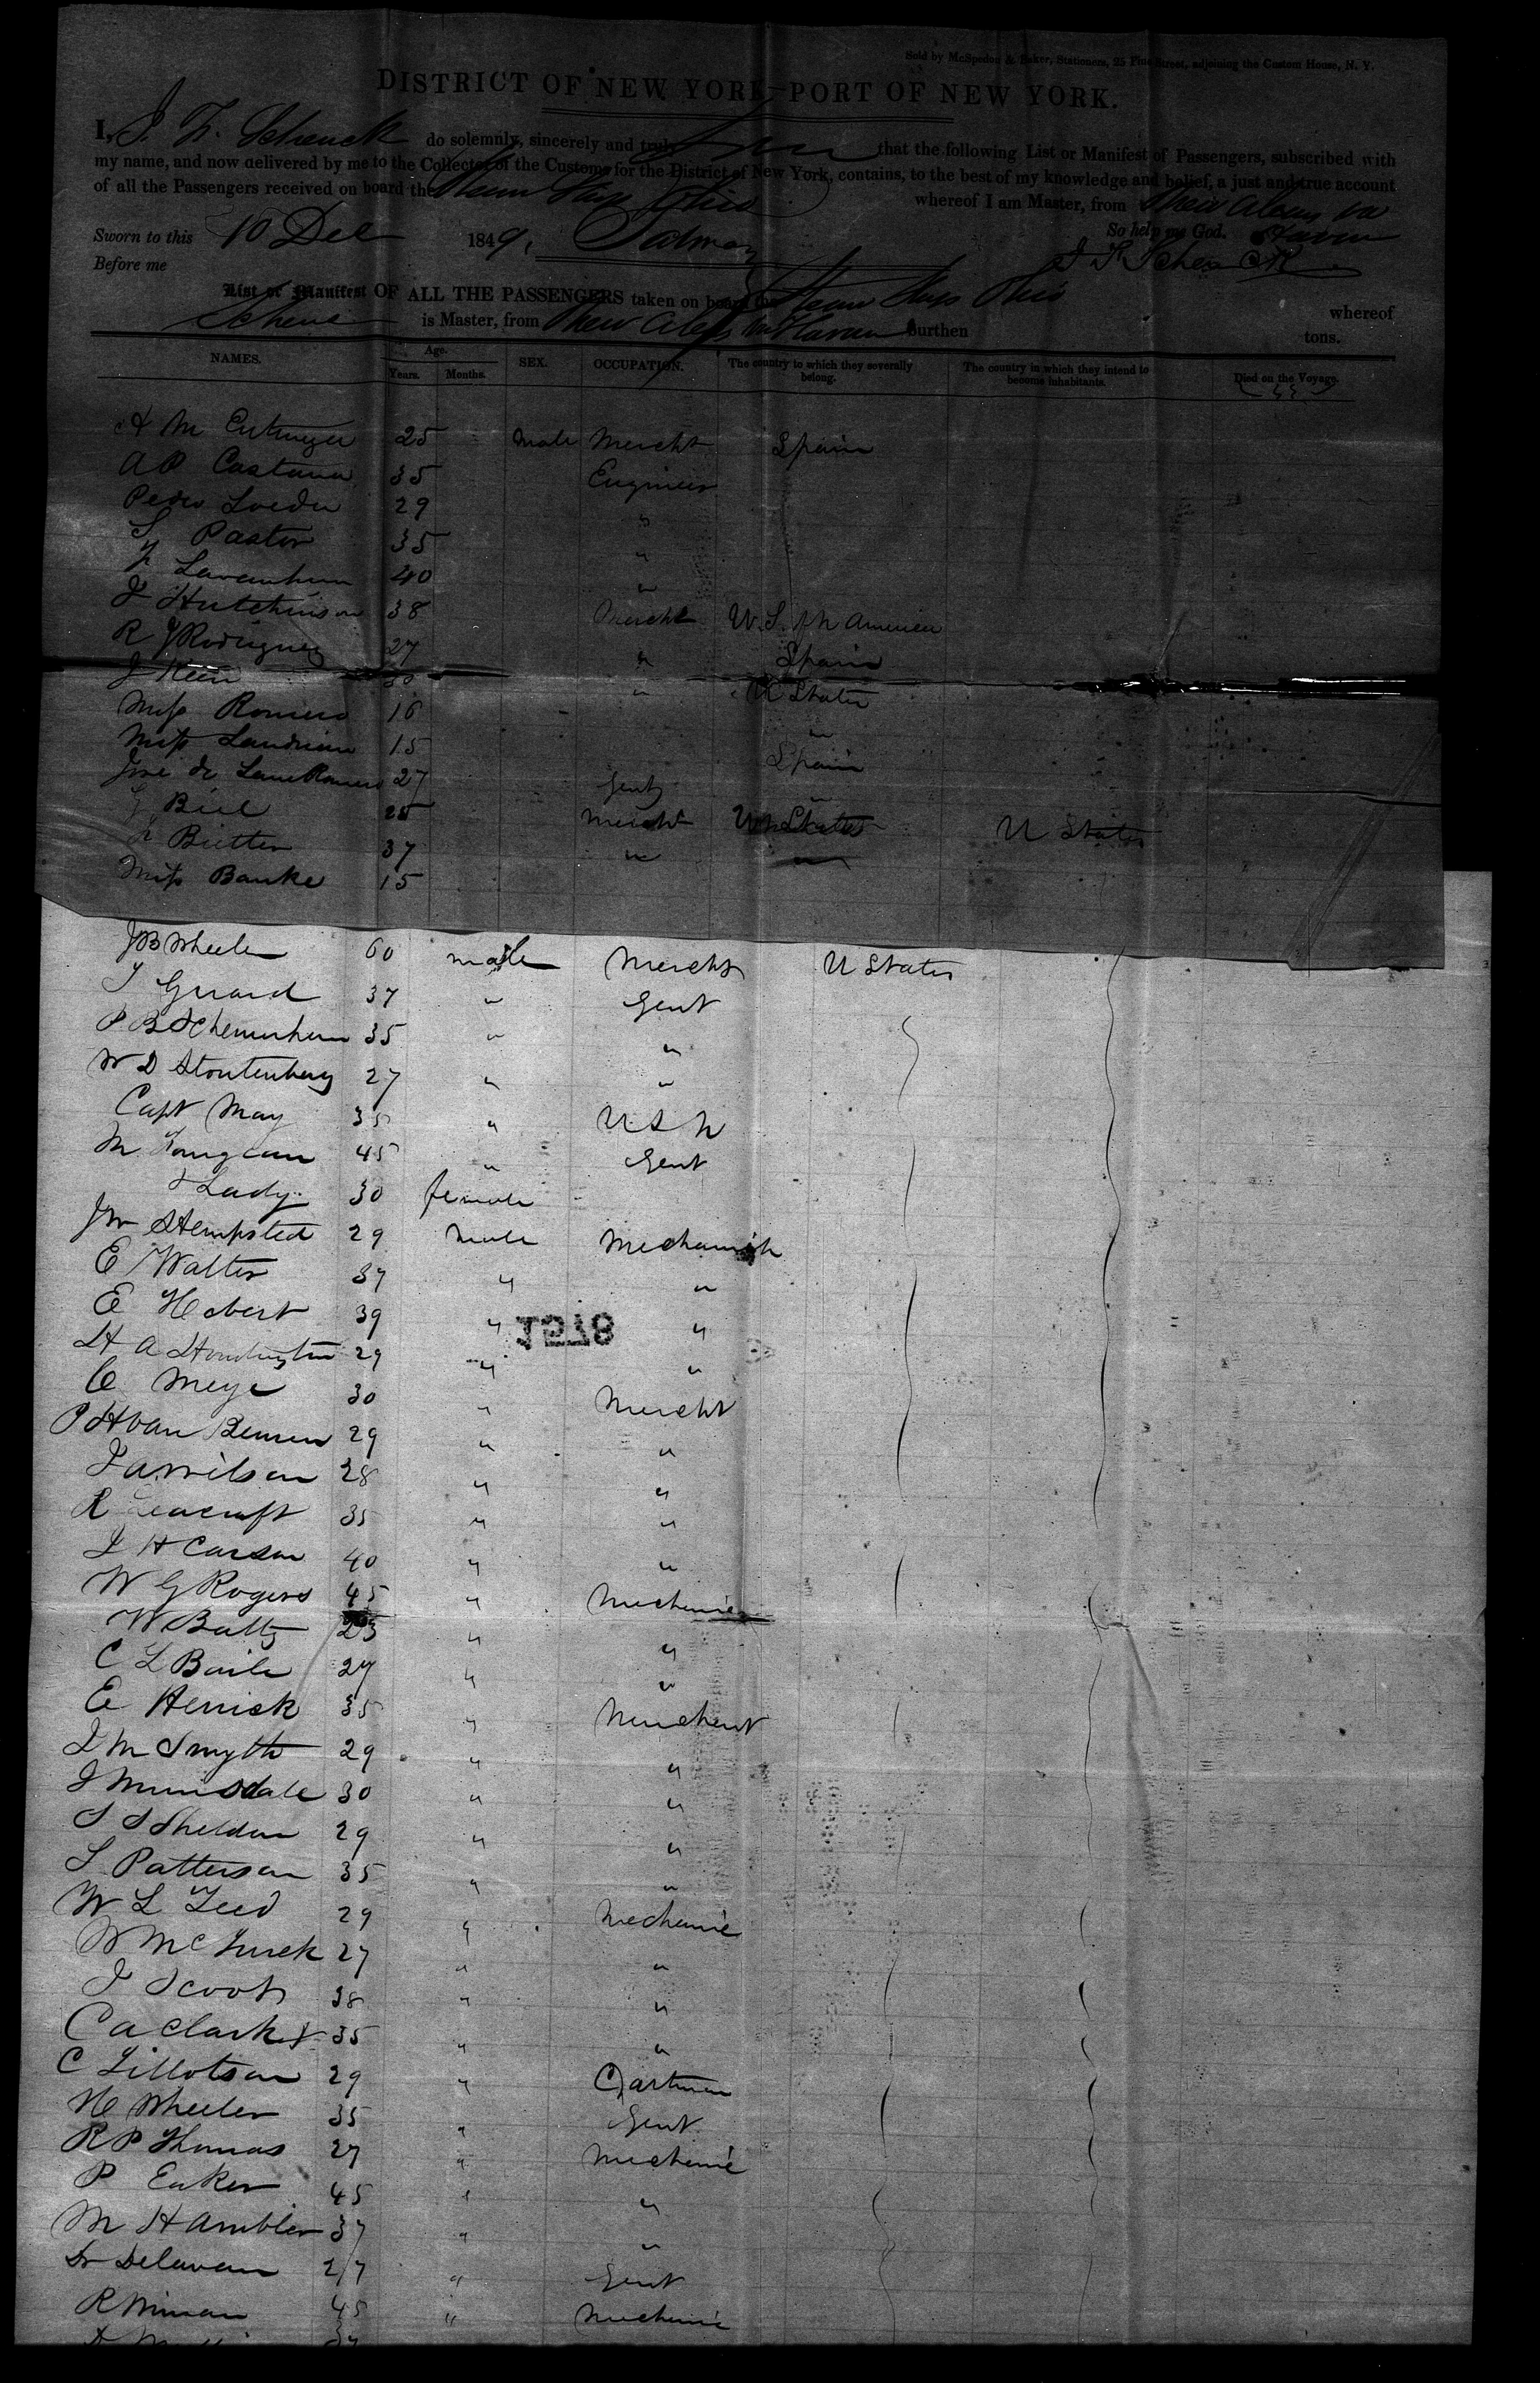 Sold by McSpedon & Baker, Stationers, 25 Pine Street, adjoining the Custom House, N. Y.
DISTRICT OF NEW YORK—PORT OF NEW YORK.
I, J. F. Schenck do solemnly, sincerely and truly that the following List or Manifest of Passengers, subscribed with
my name, and now delivered by me to the Collector of the Customs for the District of New York, contains, to the best of my knowledge and belief, a just and true account
of all the Passengers received on board the Steam Ship Ohio whereof I am Master, from New Orleans via
Sworn to this 10 Dec 1849, So help me God. Havana
Before me J F Schenck
List or Manifest OF ALL THE PASSENGERS taken on board the Steam Ship Ohio whereof
Schenck is Master, from New Orleans Havana burthen tons.
NAMES. Age. Years. Months. SEX. OCCUPATION. The country to which they severally belong. The country in which they intend to become inhabitants. Died on the Voyage.
A M 25 male Mercht Spain
A P Castana 35 Engineer
Pedro 29 "
Pastor 35 "
40 "
J Hutchinson 38 Mercht U. S. of N America
R Rodriguez 27 " Spain
J Keen 30 " U States
Miss Romero 16 "
Miss 15 Spain
Jose de 27 Gent "
Biel 25 Mercht U States U States
Britten 37 " "
Miss Banke 15
J B Wheeler 60 male Mercht U States
T Guard 37 " Gent
P B 35 " "
W D Stoutenburg 27 " "
Capt May 35 " U S N
M 45 " Gent
& Lady 30 female
J W Hempsted 29 male Mechanick
E Walter 37 " "
E Hebert 39 " "
1578
H A 29 " "
C Meye 30 " Mercht
P H Van 29 " "
J A Wilson 28 " "
R Seacraft 35 " "
J H Carson 40 " "
W G Rogers 45 " Mechanic
W Batty 25 " "
C L Baile 27 " "
E Herrick 35 " Merchant
J M Smyth 29 " "
J Minisdale 30 " "
S S Sheldon 29 " "
S Patterson 35 " "
W L Teed 29 " Mechanic
W McTurck 27 " "
J Scoot 38 " "
C A Clark 35 " "
C Tillotson 29 " Cartman
H Wheeler 35 " Gent
R P Thomas 27 " Mechanic
P Eaker 45 " "
M H Ambler 37 " "
Dr Delavan 27 " Gent
R Winan 45 " Mechanic